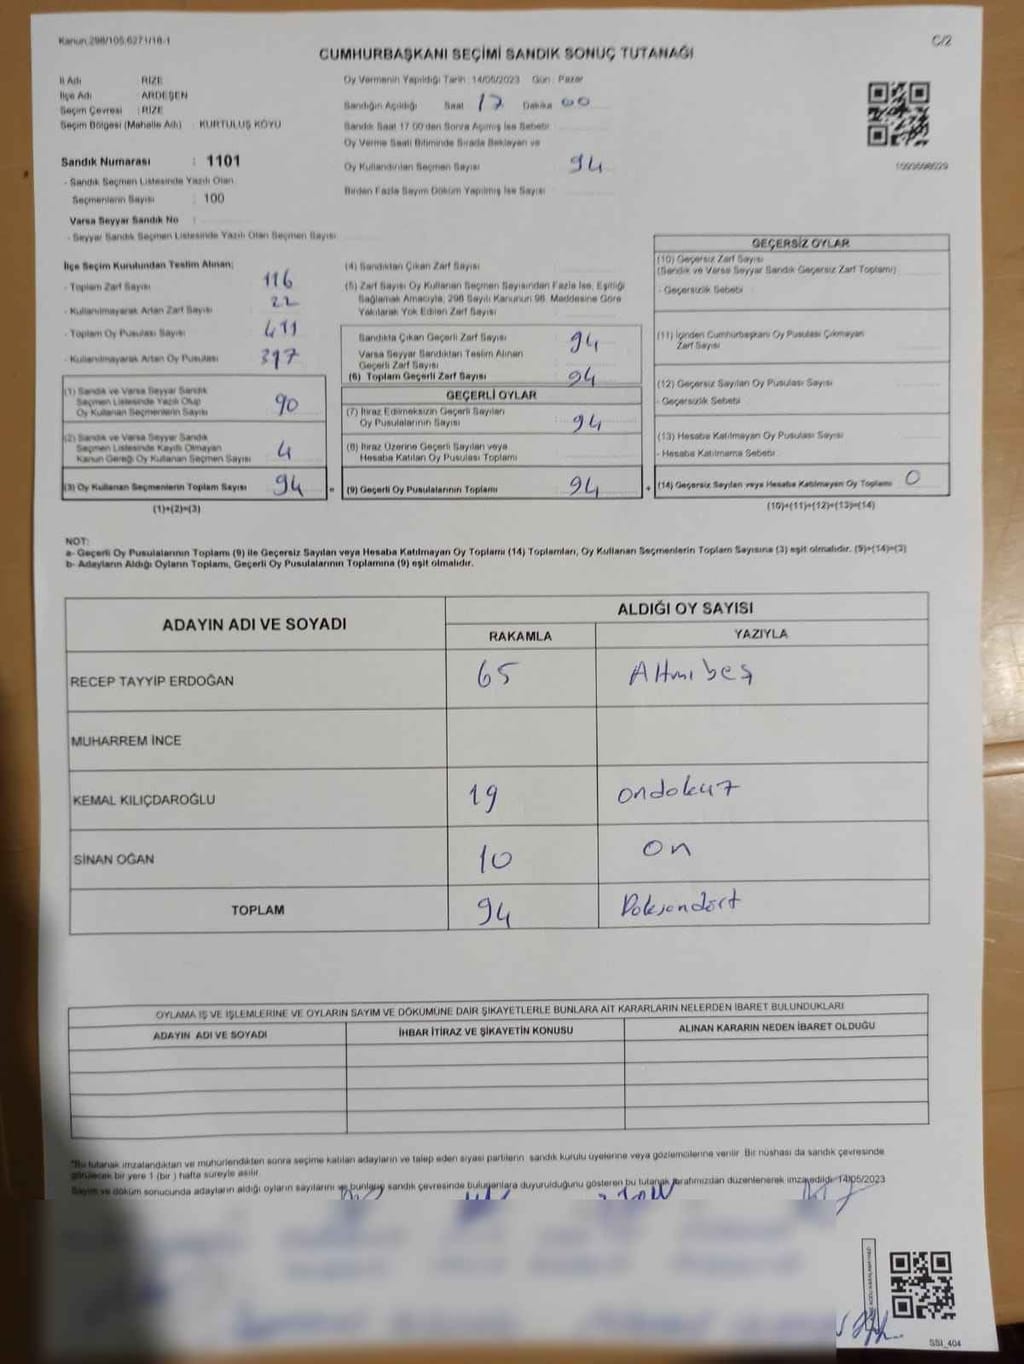 Kanun:298/105,6271/18-1
C/2
CUMHURBAŞKANI SEÇİMİ SANDIK SONUÇ TUTANAĞI
İl Adı : RİZE
İlçe Adı : ARDEŞEN
Seçim Çevresi : RİZE
Seçim Bölgesi (Mahalle Adı) : KURTULUŞ KÖYÜ
Sandık Numarası : 1101
- Sandık Seçmen Listesinde Yazılı Olan
Seçmenlerin Sayısı : 100
Varsa Seyyar Sandık No :
- Seyyar Sandık Seçmen Listesinde Yazılı Olan Seçmen Sayısı
Oy Vermenin Yapıldığı Tarih : 14/05/2023 Gün : Pazar
Sandığın Açıldığı Saat 17 Dakika 00
Sandık Saat 17.00'den Sonra Açılmış İse Sebebi
Oy Verme Saati Bitiminde Sırada Bekleyen ve
Oy Kullandırılan Seçmen Sayısı 94
Birden Fazla Sayım Döküm Yapılmış İse Sayısı
İlçe Seçim Kurulundan Teslim Alınan;
- Toplam Zarf Sayısı 116
- Kullanılmayarak Artan Zarf Sayısı 22
- Toplam Oy Pusulası Sayısı 411
- Kullanılmayarak Artan Oy Pusulası 317
(1) Sandık ve Varsa Seyyar Sandık
Seçmen Listesinde Yazılı Olup
Oy Kullanan Seçmenlerin Sayısı 90
(2) Sandık ve Varsa Seyyar Sandık
Seçmen Listesinde Kayıtlı Olmayan
Kanun Gereği Oy Kullanan Seçmen Sayısı 4
(3) Oy Kullanan Seçmenlerin Toplam Sayısı 94 =
(1)+(2)=(3)
(4) Sandıktan Çıkan Zarf Sayısı
(5) Zarf Sayısı Oy Kullanan Seçmen Sayısından Fazla İse, Eşitliği
Sağlamak Amacıyla, 298 Sayılı Kanunun 98. Maddesine Göre
Yakılarak Yok Edilen Zarf Sayısı
Sandıkta Çıkan Geçerli Zarf Sayısı 94
Varsa Seyyar Sandıktan Teslim Alınan
Geçerli Zarf Sayısı
(6) Toplam Geçerli Zarf Sayısı 94
GEÇERLİ OYLAR
(7) İtiraz Edilmeksizin Geçerli Sayılan
Oy Pusulalarının Sayısı 94
(8) İtiraz Üzerine Geçerli Sayılan veya
Hesaba Katılan Oy Pusulası Toplamı
(9) Geçerli Oy Pusulalarının Toplamı 94 +
GEÇERSİZ OYLAR
(10) Geçersiz Zarf Sayısı
(Sandık ve Varsa Seyyar Sandık Geçersiz Zarf Toplamı)
- Geçersizlik Sebebi
(11) İçinden Cumhurbaşkanı Oy Pusulası Çıkmayan
Zarf Sayısı
(12) Geçersiz Sayılan Oy Pusulası Sayısı
- Geçersizlik Sebebi
(13) Hesaba Katılmayan Oy Pusulası Sayısı
- Hesaba Katılmama Sebebi
(14) Geçersiz Sayılan veya Hesaba Katılmayan Oy Toplamı 0
(10)+(11)+(12)+(13)=(14)
NOT:
a- Geçerli Oy Pusulalarının Toplamı (9) ile Geçersiz Sayılan veya Hesaba Katılmayan Oy Toplamı (14) Toplamları, Oy Kullanan Seçmenlerin Toplam Sayısına (3) eşit olmalıdır. (9)+(14)=(3)
b- Adayların Aldığı Oyların Toplamı, Geçerli Oy Pusulalarının Toplamına (9) eşit olmalıdır.
ADAYIN ADI VE SOYADI
ALDIĞI OY SAYISI
RAKAMLA YAZIYLA
RECEP TAYYİP ERDOĞAN 65 Altmıbeş
MUHARREM İNCE
KEMAL KILIÇDAROĞLU 19 ondokuz
SİNAN OĞAN 10 on
TOPLAM 94 Doksandört
OYLAMA İŞ VE İŞLEMLERİNE VE OYLARIN SAYIM VE DÖKÜMÜNE DAİR ŞİKAYETLERLE BUNLARA AİT KARARLARIN NELERDEN İBARET BULUNDUKLARI
ADAYIN ADI VE SOYADI İHBAR İTİRAZ VE ŞİKAYETİN KONUSU ALINAN KARARIN NEDEN İBARET OLDUĞU
*Bu tutanak imzalandıktan ve mühürlendikten sonra seçime katılan adayların ve talep eden siyasi partilerin sandık kurulu üyelerine veya gözlemcilerine verilir. Bir nüshası da sandık çevresinde
görülecek bir yere 1 (bir) hafta süreyle asılır.
Sayım ve döküm sonucunda adayların aldığı oyların sayılarını ve bunların sandık çevresinde bulunanlara duyurulduğunu gösteren bu tutanak tarafımızdan düzenlenerek imza edildi. 14/05/2023
SSI_404